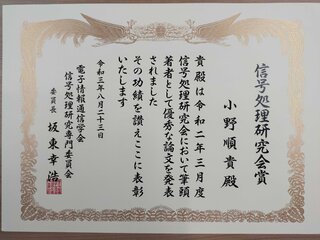 信号処理研究会賞
小野順貴 殿
貴殿は令和二年三月度
信号処理研究会において筆頭
著者として優秀な論文を発表
されました
その功績を讃えここに表彰
いたします
令和三年八月二十三日
電子情報通信学会
信号処理研究専門委員会
委員長 坂東幸浩